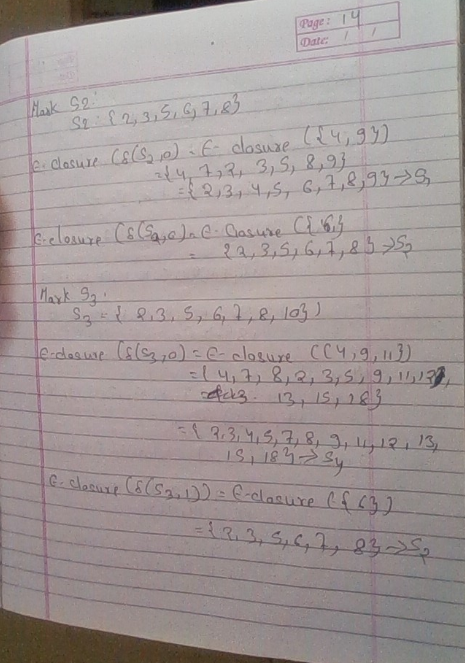 Page: 14
Date: / /
Mark S2:
S2: {2,3,5,6,7,8}
ε-closure (δ(S2,0) = ε- closure ({4,9})
= {4, 7, 2, 3, 5, 8, 9}
= {2,3, 4,5, 6,7,8,9} → S1
ε-closure (δ(S2,0) = ε- closure ({6}
= {2,3,5,6,7,8} → S2
Mark S3.
S3 = { 2,3, 5, 6, 7, 8, 10})
ε-closure (δ(S3,0) = ε- closure ((4,9,11})
= {4,7, 8, 2, 3, 5, 9, 11, 12,
13, 15, 18}
= { 2,3,4,5,7,8,9,11,12,13,
15, 18} → S4
ε-closure (δ(S3,1)) = ε-closure ({6})
= {2,3,5,6,7, 8} → S2